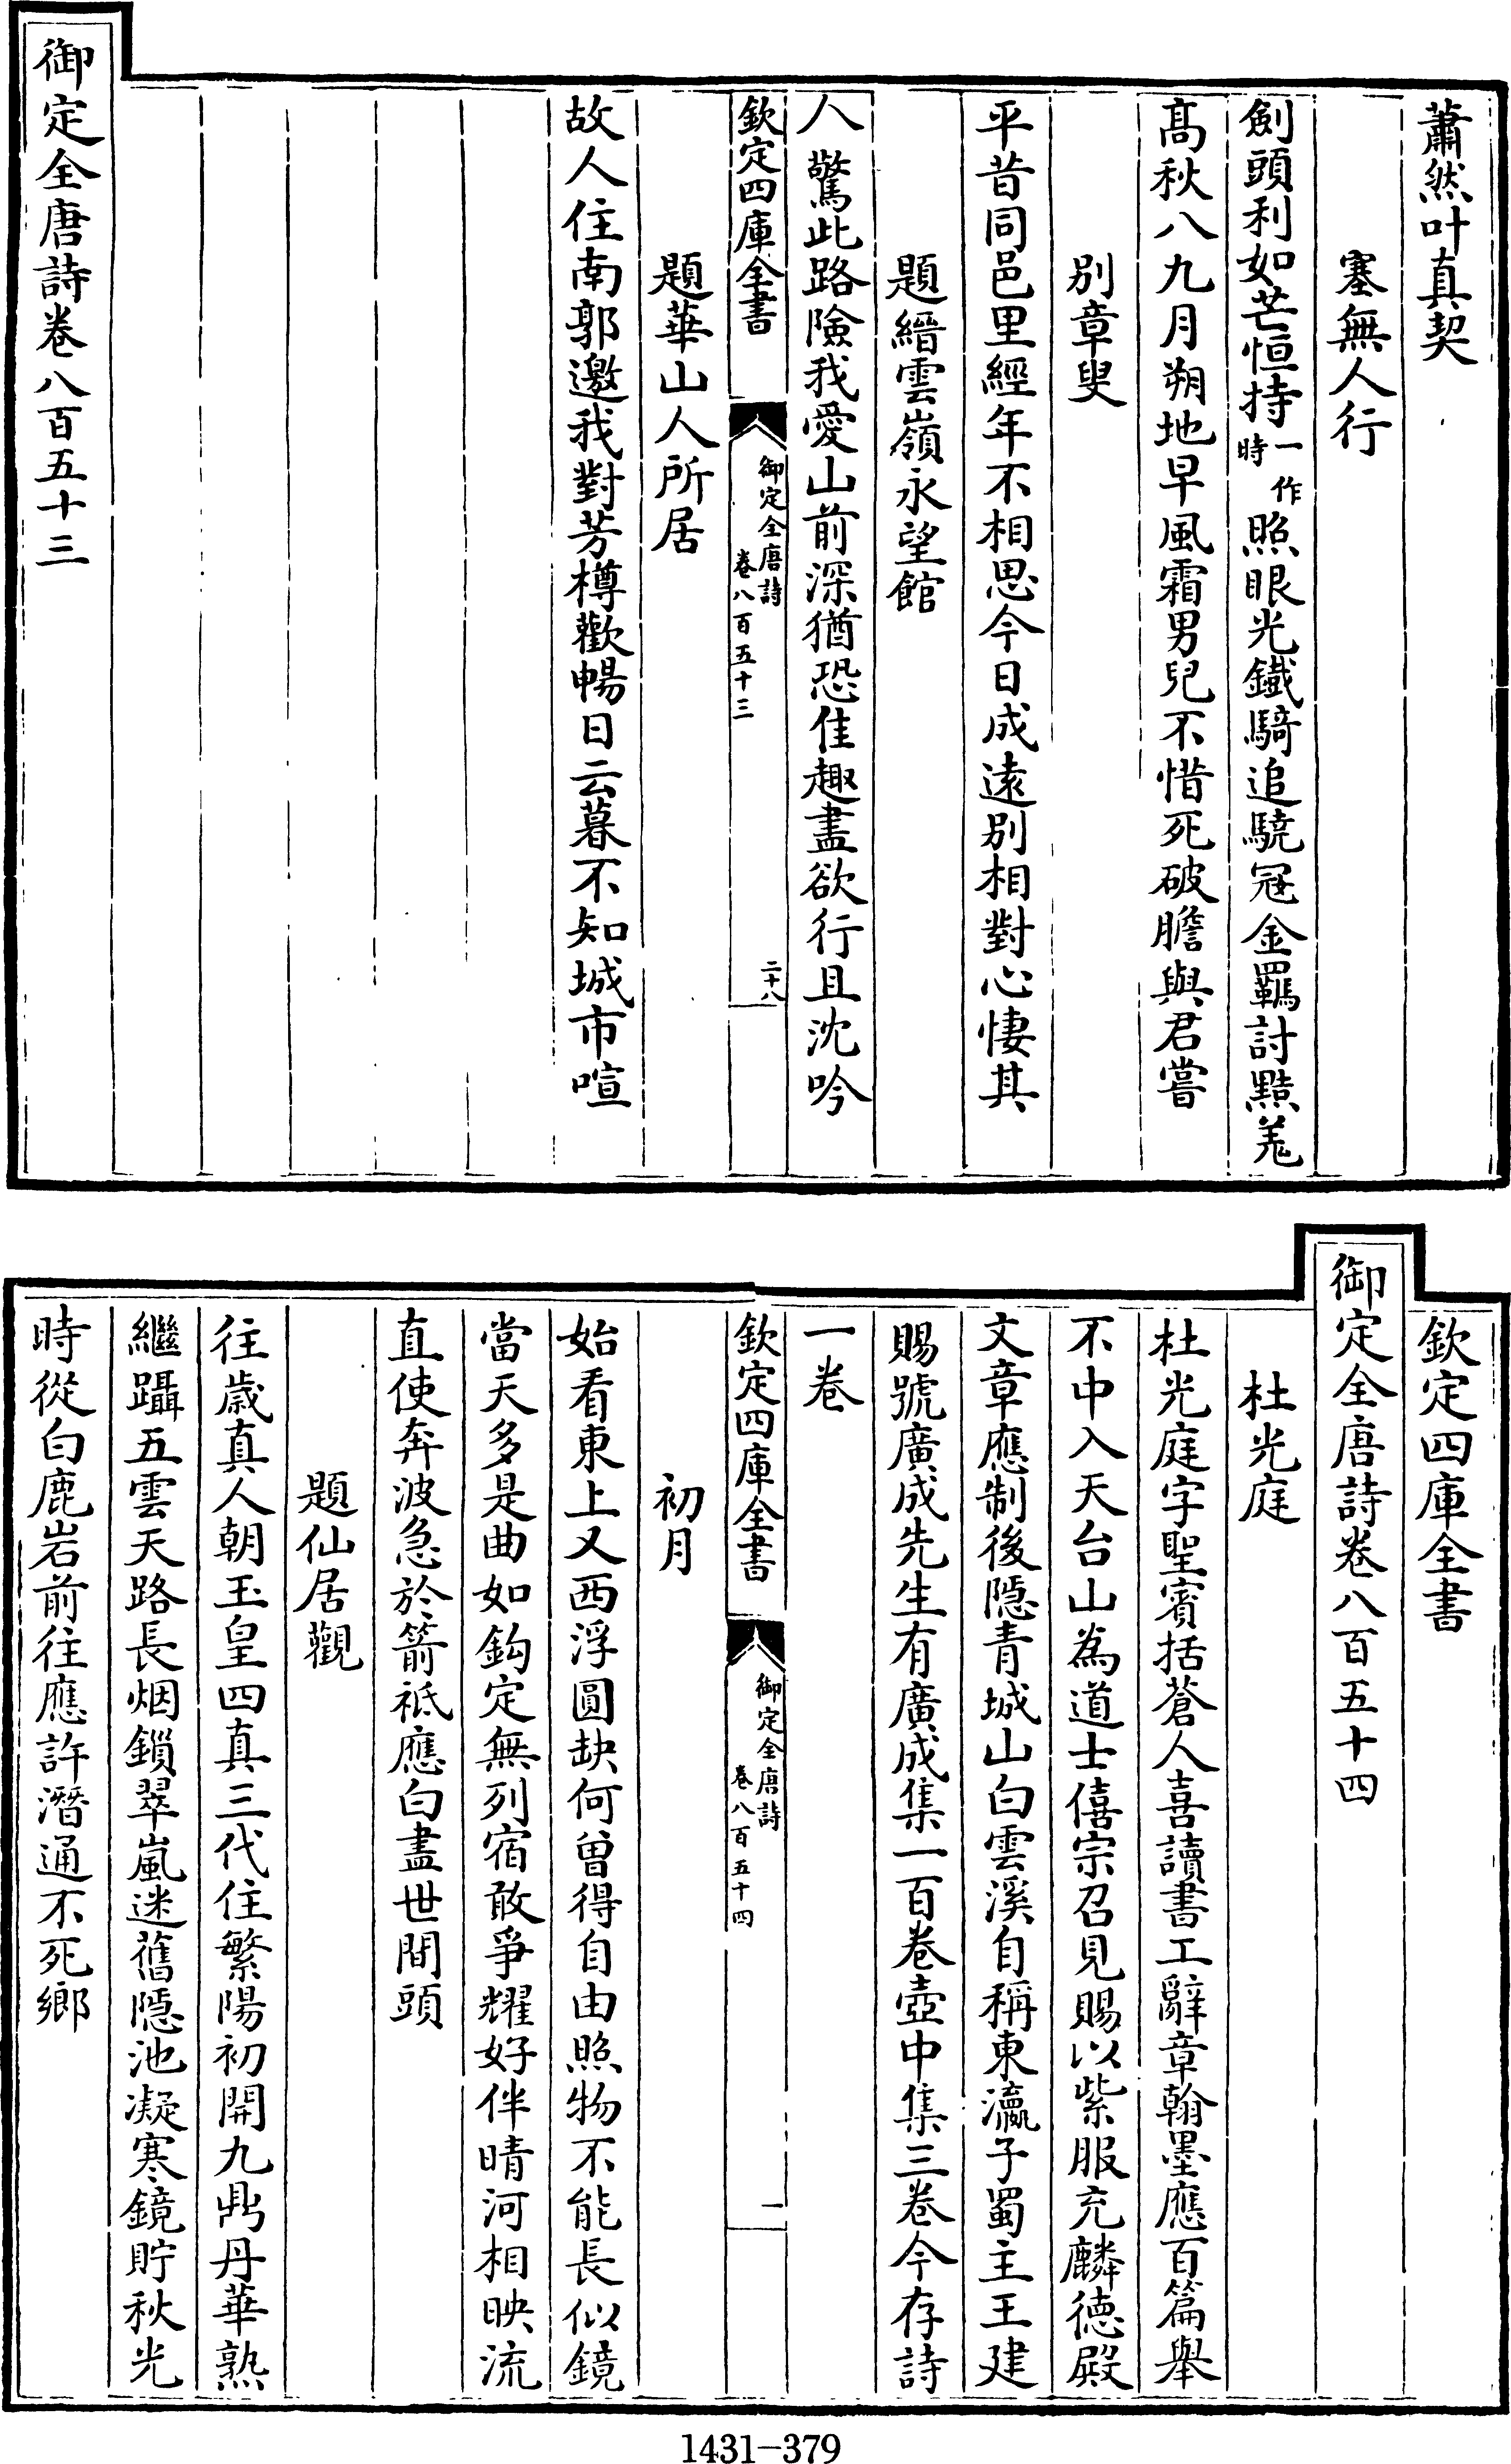 蕭然叶真契
塞無人行
劍頭利如芒恒持一作時照眼光鐵騎追驍冠金羈討黠羗
髙秋八九月朔地早風霜男兒不惜死破膽與君嘗
別章叟
平昔同邑里經年不相思今日成遠別相對心悽其
題縉雲嶺永望館
人驚此路險我愛山前深猶恐佳趣盡欲行且沈吟
欽定四庫全書
御定全唐詩
卷八百五十三
二十八
題華山人所居
故人住南郭邀我對芳樽歡暢日云暮不知城市喧
御定全唐詩卷八百五十三
欽定四庫全書
御定全唐詩卷八百五十四
杜光庭
杜光庭字聖賓括蒼人喜讀書工辭章翰墨應百篇舉
不中入天台山為道士僖宗召見賜以紫服充麟德殿
文章應制後隱青城山白雲溪自稱東瀛子蜀主王建
賜號廣成先生有廣成集一百卷壺中集三卷今存詩
一卷
欽定四庫全書
御定全唐詩
卷八百五十四
一
初月
始看東上又西浮圓缺何曽得自由照物不能長似鏡
當天多是曲如鈎定無列宿敢爭耀好伴晴河相映流
直使奔波急於箭祗應白盡世間頭
題仙居觀
往歲真人朝玉皇四真三代住繁陽初開九鼎丹華熟
繼躡五雲天路長烟鎻翠嵐迷舊隱池凝寒鏡貯秋光
時從白鹿岩前往應許潛通不死鄉
1431-379